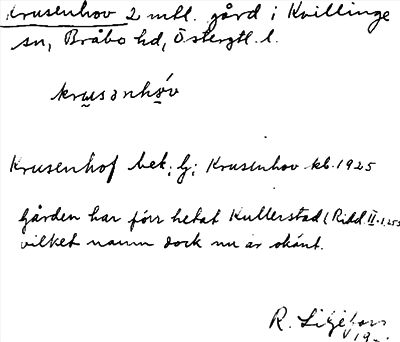 Krusenhov 2 mtl. gård i Kvillinge
sn, Bråbo hd, Östergtl. l.
krusənhóv
Krusenhof bet. lj; Krusenhov kb. 1925
Gården har förr hetat Kullerstad (Ridd II. 1,255
vilket namn dock nu är okänt.
R. Liljefors